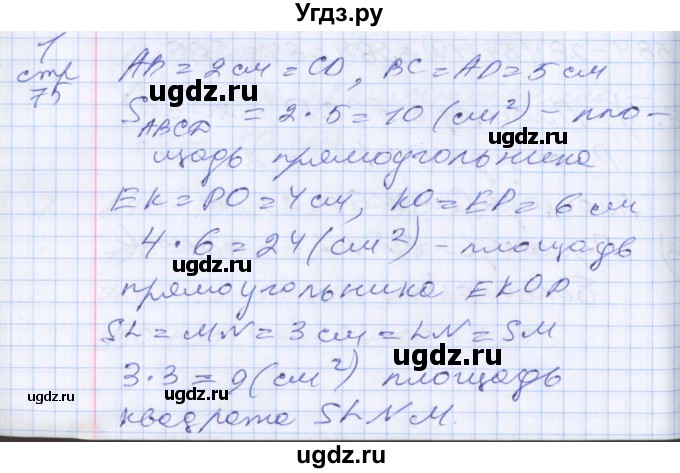 Угдз.ру
1
стр
75
AB = 2 см = CD, BC = AD = 5 см
S ABCD = 2 · 5 = 10 (см²) - пло-
щадь прямоугольника
EK = PO = 4 см, KO = EP = 6 см
4 · 6 = 24 (см²) - площадь
прямоугольника EKOP
SL = MN = 3 см = LN = SM
3 · 3 = 9 (см²) площадь
квадрата SLNM.
ugdz.ru
ugdz.ru
ugdz.ru
ugdz.ru
ugdz.ru
ugdz.ru
ugdz.ru
ugdz.ru